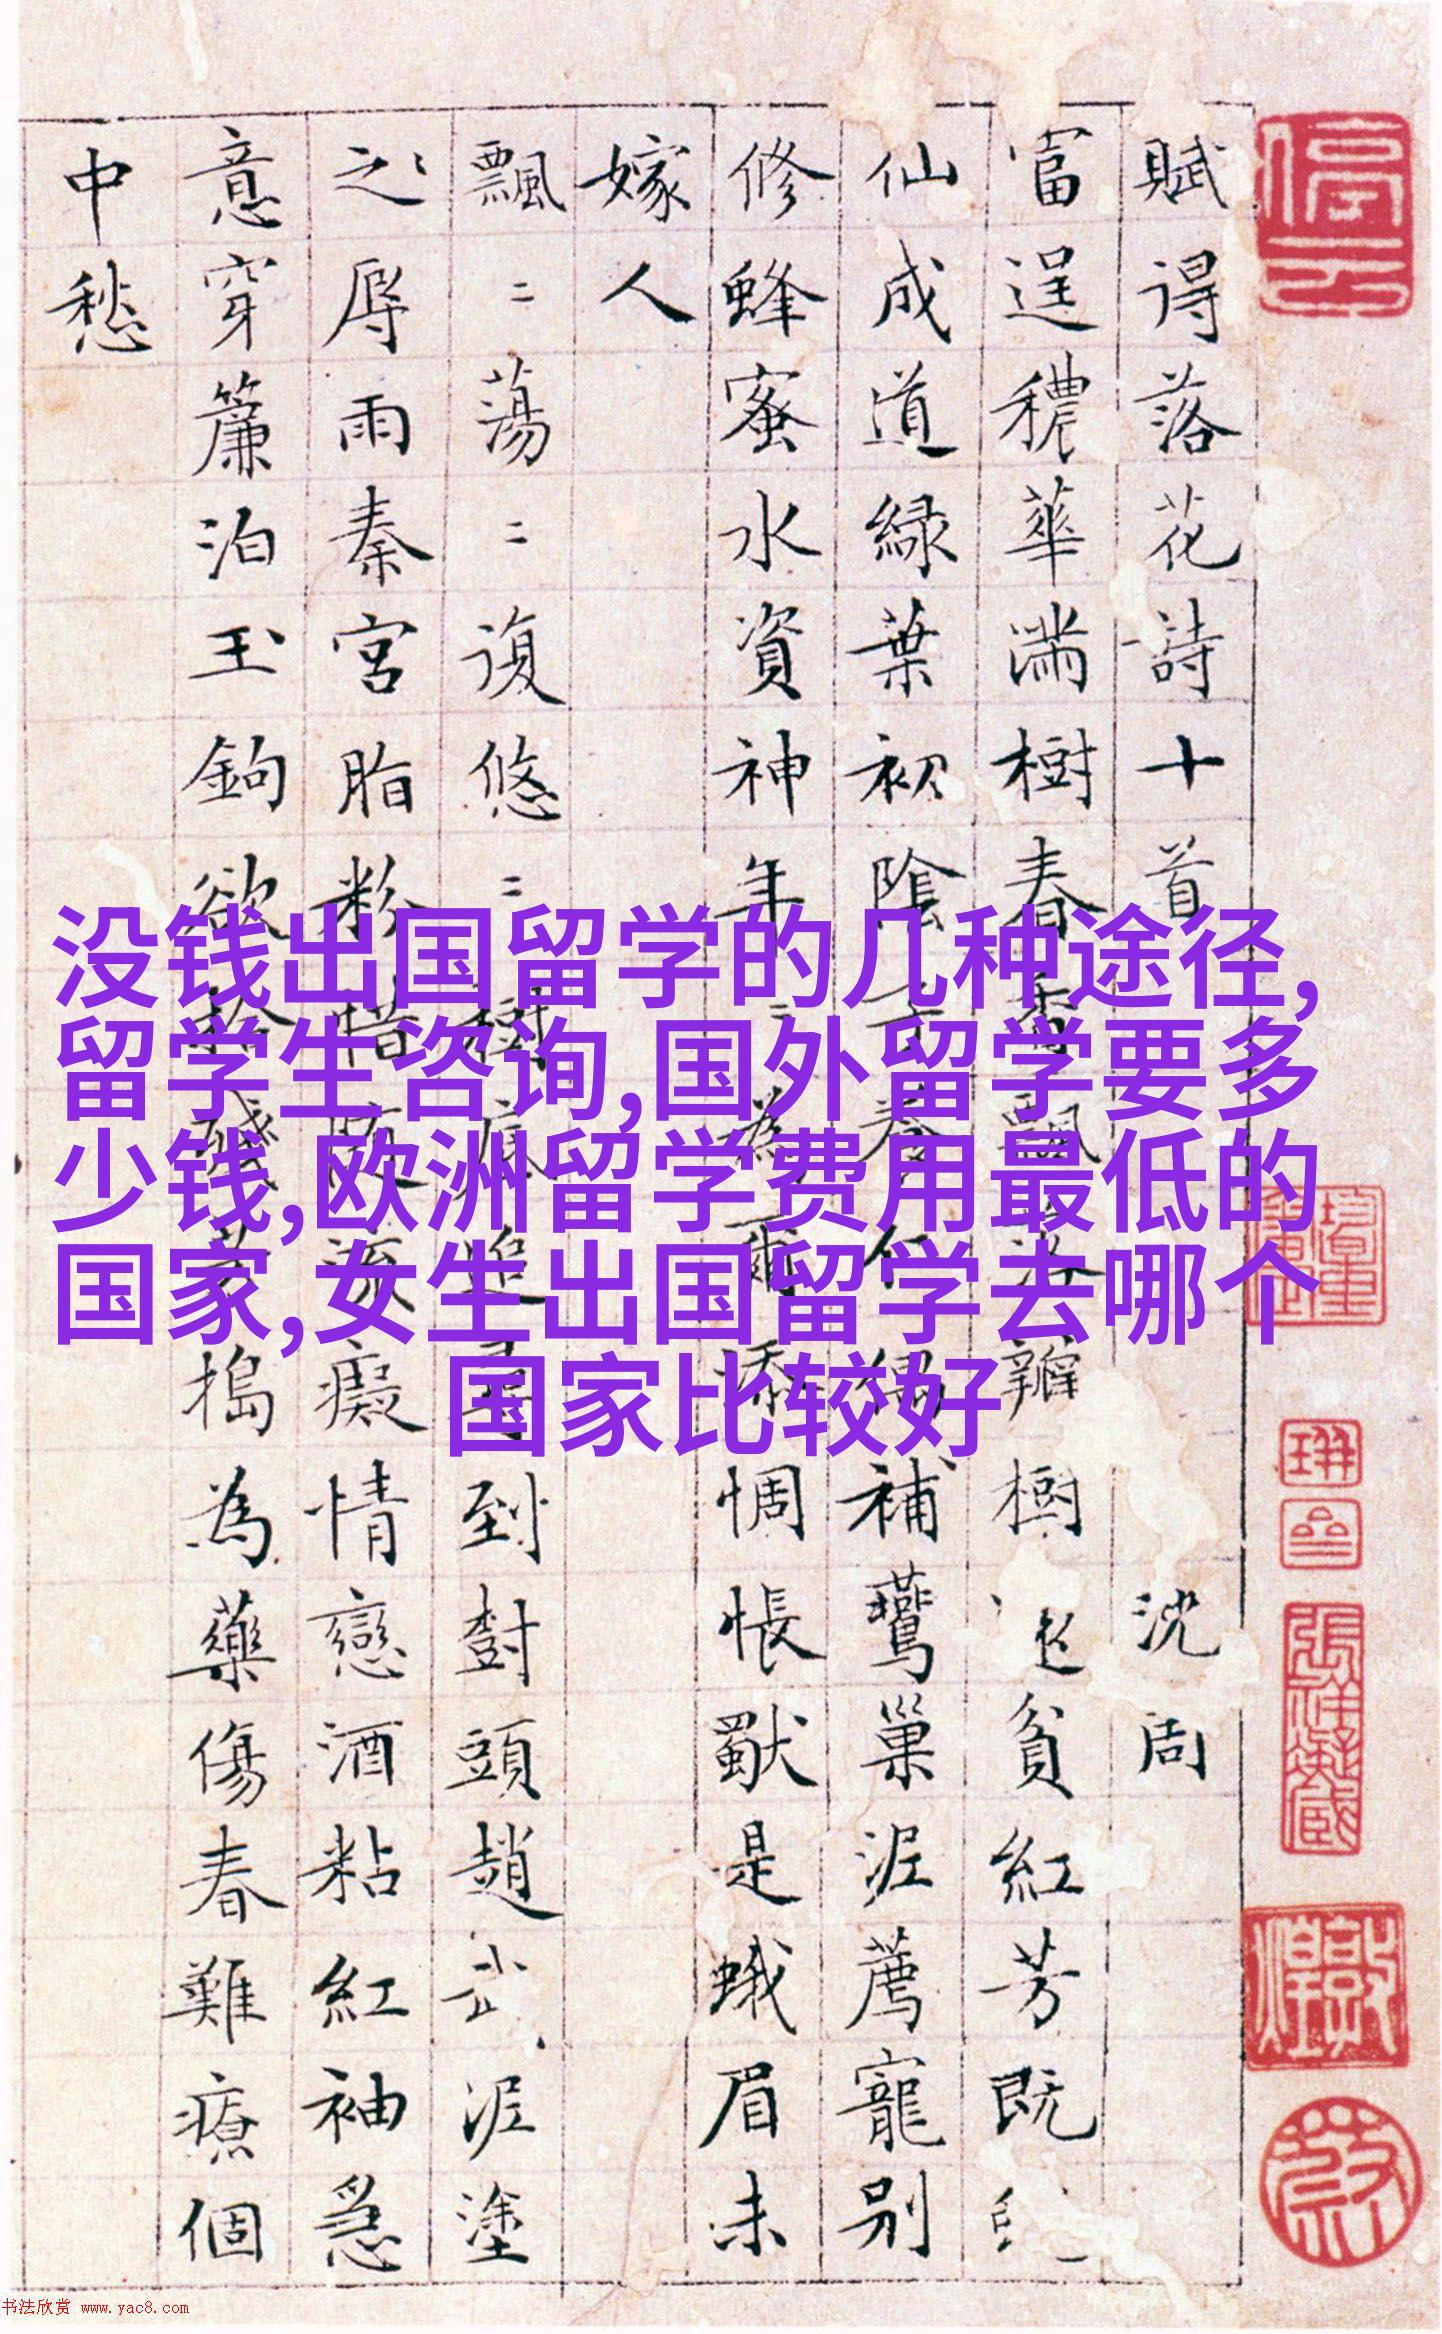 没钱出国留学的几种途径,
留学生咨询,国外留学要多
少钱,欧洲留学费用最低的
国家,女生出国留学去哪个
国家比较好
賦得落花詩十首 沈周
富逞穠華滿樹春 香飄 落 瓣樹 還貧紅芳既
仙成道綠葉初陰 養 仁偶補鶯巢泥薦寵別
修蜂蜜水資神年 為 爾添惆悵獸是蛾眉未
嫁人
飄二蕩二復悠二樹 底追尋到樹頭趙武泥塗
之辱雨秦宮脂粉惜 流癡情戀酒粘紅袖急
意穿簾泊玉鉤欲拾殘 芳搗為藥傷春難療個
中愁
停雲
书法欣赏 www.yac8.com